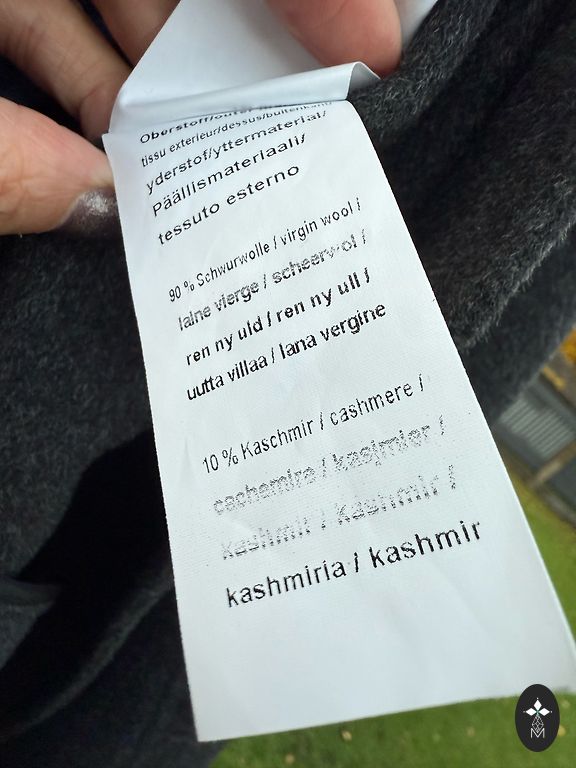 Oberstoff/outer
tissu exterieur/dessus/buitenkant/
yderstof/yttermaterial/
Päällismateriaali/
tessuto esterno
90 % Schwurwolle / virgin wool /
laine vierge / scheerwol /
ren ny uld / ren ny ull /
uutta villaa / lana vergine
10 % Kaschmir / cashmere /
cachemire / kasjmier /
kashmir / kashmir /
kashmiria / kashmir
M